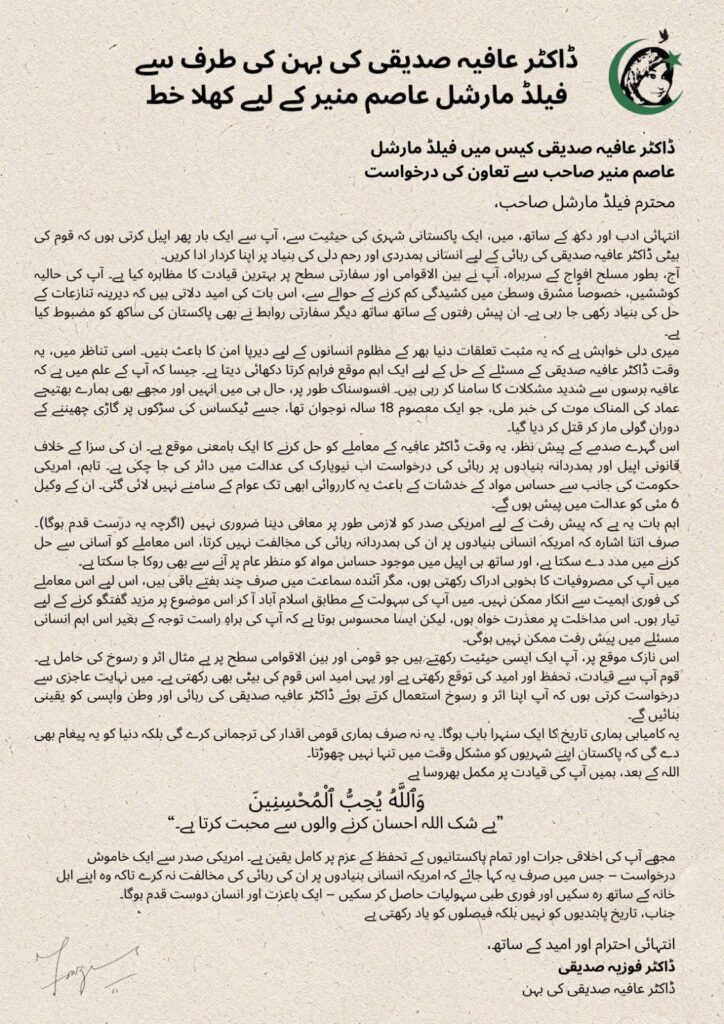 ڈاکٹر عافیہ صدیقی کی بہن کی طرف سے
فیلڈ مارشل عاصم منیر کے لیے کھلا خط
ڈاکٹر عافیہ صدیقی کیس میں فیلڈ مارشل
عاصم منیر صاحب سے تعاون کی درخواست
محترم فیلڈ مارشل صاحب،
انتہائی ادب اور دکھ کے ساتھ، میں، ایک پاکستانی شہری کی حیثیت سے، آپ سے ایک بار پھر اپیل کرتی ہوں کہ قوم کی
بیٹی ڈاکٹر عافیہ صدیقی کی رہائی کے لیے انسانی ہمدردی اور رحم دلی کی بنیاد پر اپنا کردار ادا کریں۔
آج، بطور مسلح افواج کے سربراہ، آپ نے بین الاقوامی اور سفارتی سطح پر بہترین قیادت کا مظاہرہ کیا ہے۔ آپ کی حالیہ
کوششیں، خصوصاً مشرق وسطیٰ میں کشیدگی کم کرنے کے حوالے سے، اس بات کی امید دلاتی ہیں کہ دیرینہ تنازعات کے
حل کی بنیاد رکھی جا رہی ہے۔ ان پیش رفتوں کے ساتھ ساتھ دیگر سفارتی روابط نے بھی پاکستان کی ساکھ کو مضبوط کیا
ہے۔
میری دلی خواہش ہے کہ یہ مثبت تعلقات دنیا بھر کے مظلوم انسانوں کے لیے دیرپا امن کا باعث بنیں۔ اسی تناظر میں، یہ
وقت ڈاکٹر عافیہ صدیقی کے مسئلے کے حل کے لیے ایک اہم موقع فراہم کرتا دکھائی دیتا ہے۔ جیسا کہ آپ کے علم میں ہے کہ
عافیہ برسوں سے شدید مشکلات کا سامنا کر رہی ہیں۔ افسوسناک طور پر، حال ہی میں انہیں اور مجھے بھی ہمارے بھتیجے
عماد کی المناک موت کی خبر ملی، جو ایک معصوم 18 سالہ نوجوان تھا، جسے ٹیکساس کی سڑکوں پر گاڑی چھیننے کے
دوران گولی مار کر قتل کر دیا گیا۔
اس گہرے صدمے کے پیش نظر، یہ وقت ڈاکٹر عافیہ کے معاملے کو حل کرنے کا ایک بامعنی موقع ہے۔ ان کی سزا کے خلاف
قانونی اپیل اور ہمدردانہ بنیادوں پر رہائی کی درخواست اب نیویارک کی عدالت میں دائر کی جا چکی ہے۔ تاہم، امریکی
حکومت کی جانب سے حساس مواد کے خدشات کے باعث یہ کارروائی ابھی تک عوام کے سامنے نہیں لائی گئی۔ ان کے وکیل
6 مئی کو عدالت میں پیش ہوں گے۔
اہم بات یہ ہے کہ پیش رفت کے لیے امریکی صدر کو لازمی طور پر معافی دینا ضروری نہیں (اگرچہ یہ درست قدم ہوگا)۔
صرف اتنا اشارہ کہ امریکہ انسانی بنیادوں پر ان کی ہمدردانہ رہائی کی مخالفت نہیں کرتا، اس معاملے کو آسانی سے حل
کرنے میں مدد دے سکتا ہے، اور ساتھ ہی اپیل میں موجود حساس مواد کو منظر عام پر آنے سے بھی روکا جا سکتا ہے۔
میں آپ کی مصروفیات کا بخوبی ادراک رکھتی ہوں، مگر آئندہ سماعت میں صرف چند ہفتے باقی ہیں، اس لیے اس معاملے
کی فوری اہمیت سے انکار ممکن نہیں۔ میں آپ کی سہولت کے مطابق اسلام آباد آ کر اس موضوع پر مزید گفتگو کرنے کے لیے
تیار ہوں۔ اس مداخلت پر معذرت خواہ ہوں، لیکن ایسا محسوس ہوتا ہے کہ آپ کی براہِ راست توجہ کے بغیر اس اہم انسانی
مسئلے میں پیش رفت ممکن نہیں ہوگی۔
اس نازک موقع پر، آپ ایک ایسی حیثیت رکھتے ہیں جو قومی اور بین الاقوامی سطح پر بے مثال اثر و رسوخ کی حامل ہے۔
قوم آپ سے قیادت، تحفظ اور امید کی توقع رکھتی ہے اور یہی امید اس قوم کی بیٹی بھی رکھتی ہے۔ میں نہایت عاجزی سے
درخواست کرتی ہوں کہ آپ اپنا اثر و رسوخ استعمال کرتے ہوئے ڈاکٹر عافیہ صدیقی کی رہائی اور وطن واپسی کو یقینی
بنائیں گے۔
یہ کامیابی ہماری تاریخ کا ایک سنہرا باب ہوگا۔ یہ نہ صرف ہماری قومی اقدار کی ترجمانی کرے گی بلکہ دنیا کو یہ پیغام بھی
دے گی کہ پاکستان اپنے شہریوں کو مشکل وقت میں تنہا نہیں چھوڑتا۔
اللہ کے بعد، ہمیں آپ کی قیادت پر مکمل بھروسا ہے
وَٱللَّهُ يُحِبُّ ٱلْمُحْسِنِينَ
”بے شک اللہ احسان کرنے والوں سے محبت کرتا ہے۔“
مجھے آپ کی اخلاقی جرات اور تمام پاکستانیوں کے تحفظ کے عزم پر کامل یقین ہے۔ امریکی صدر سے ایک خاموش
درخواست – جس میں صرف یہ کہا جائے کہ امریکہ انسانی بنیادوں پر ان کی رہائی کی مخالفت نہ کرے تاکہ وہ اپنے اہل
خانہ کے ساتھ رہ سکیں اور فوری طبی سہولیات حاصل کر سکیں – ایک باعزت اور انسان دوست قدم ہوگا۔
جناب، تاریخ پابندیوں کو نہیں بلکہ فیصلوں کو یاد رکھتی ہے
انتہائی احترام اور امید کے ساتھ،
ڈاکٹر فوزیہ صدیقی
ڈاکٹر عافیہ صدیقی کی بہن